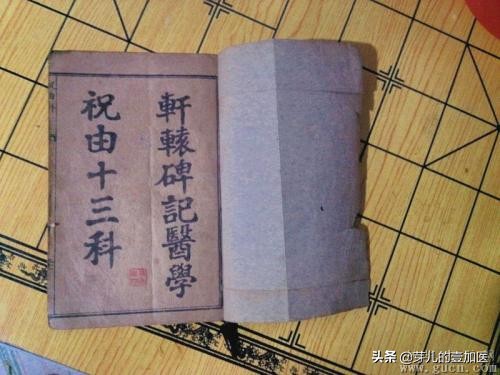 軒轅碑記醫學
祝由十三科
头条 @芽儿的壹加医
www.gucn.com